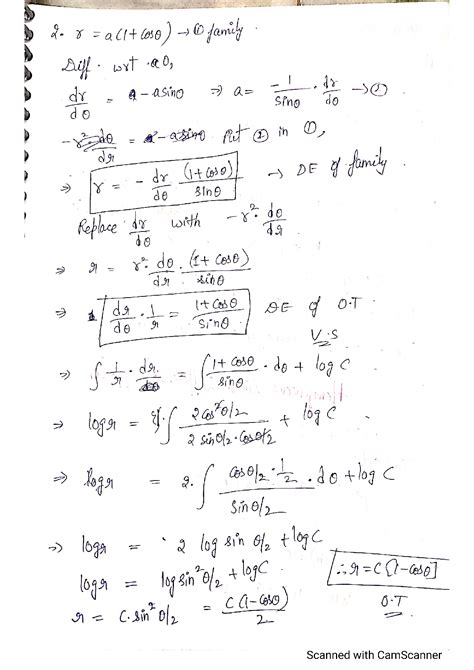 2. r = a(1+cosθ) → ① family.
Diff. wrt. θ,
dr/dθ = -a sinθ ⇒ a = -1/sinθ · dr/dθ → ②
Put ② in ①,
⇒ r = - dr/dθ (1+cosθ)/sinθ → DE of family
Replace dr/dθ with -r² · dθ/dr
⇒ r = r² · dθ/dr · (1+cosθ)/sinθ
⇒ dr/dθ · 1/r = (1+cosθ)/sinθ DE of O.T.
V.S
⇒ ∫ 1/r · dr = ∫ (1+cosθ)/sinθ · dθ + log C
⇒ log r = ∫ 2cos²θ/2 / 2 sinθ/2 · cosθ/2 + log C
⇒ log r = 2 · ∫ cosθ/2 · 1/2 / sinθ/2 · dθ + log C
⇒ log r = 2 log sin θ/2 + log C
log r = log sin²θ/2 + log C
∴ r = C[1-cosθ]
r = C · sin²θ/2 = C(1-cosθ)/2
O.T
Scanned with CamScanner